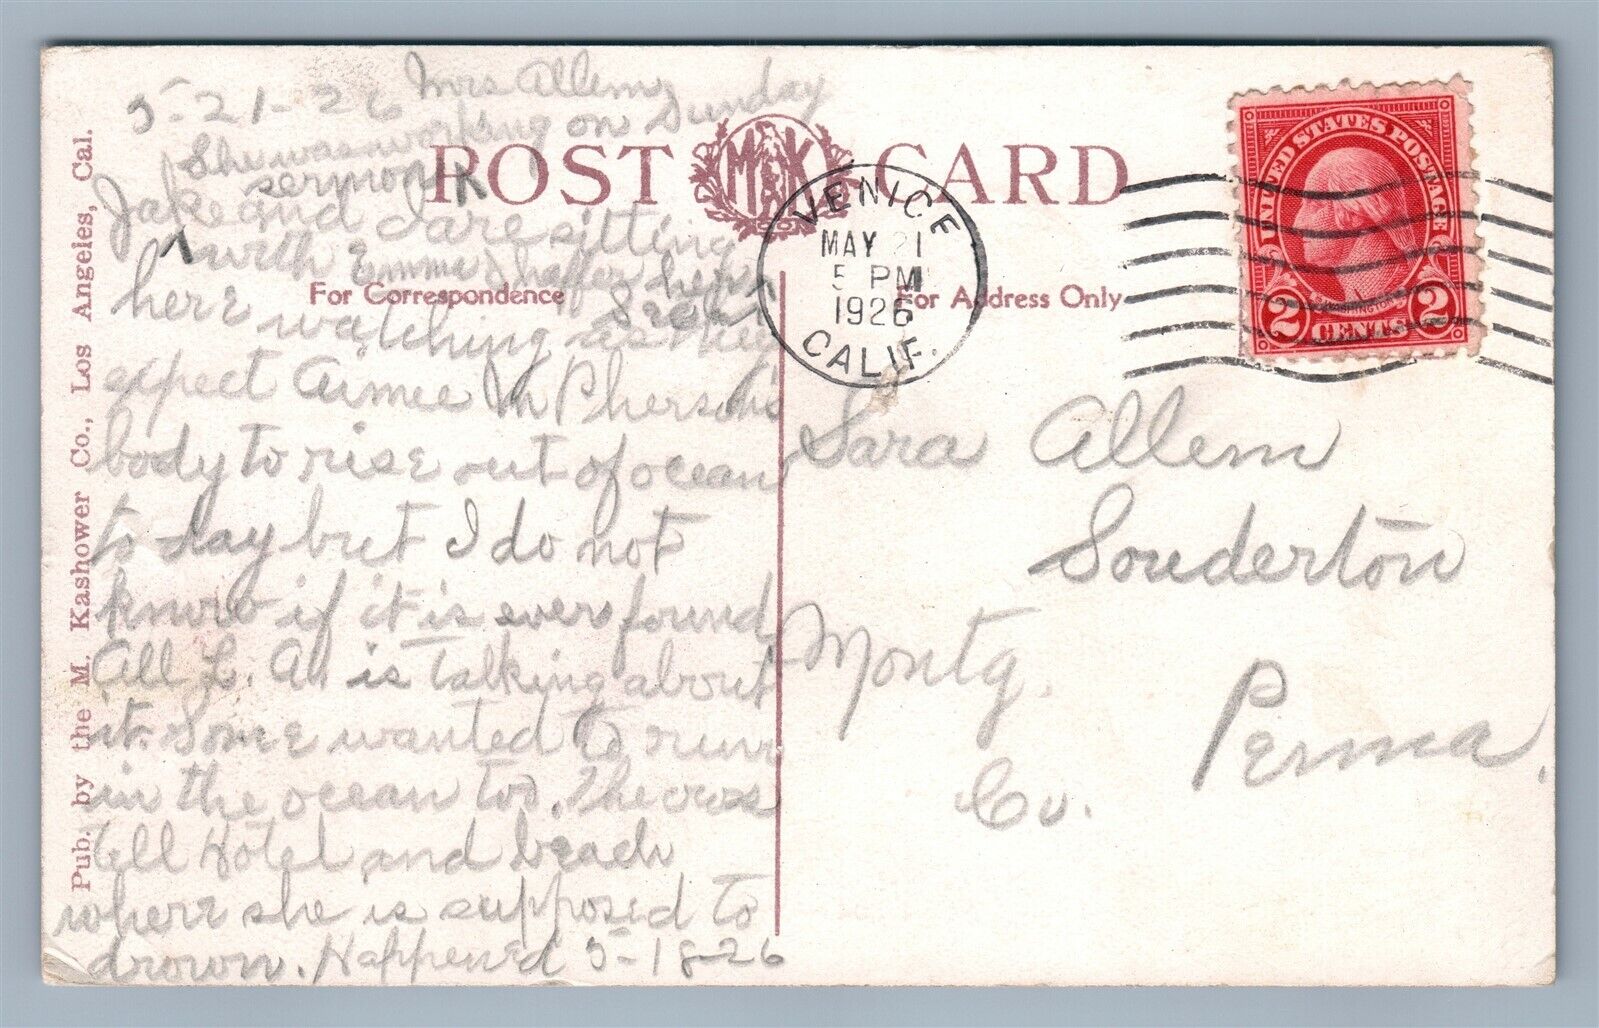 5-21-26 Mrs Allem
She was working on Sunday
sermon
POST CARD
M K
Jake and I are sitting
with Emma
For Correspondence
here watching
expect Aimee McPherson's
body to rise out of ocean
to day but I do not
know if it is ever found
All L. A. is talking about
it. Some wanted to
in the ocean too.
Hotel and beach
where she is supposed to
drown. Happened 5-18-26
Pub. by the M. Kashower Co., Los Angeles, Cal.
VENICE
MAY 21
5 PM
1926
CALIF.
UNITED STATES POSTAGE
WASHINGTON
2 CENTS 2
For Address Only
Sara Allem
Souderton
Montg.
Co.
Penna.